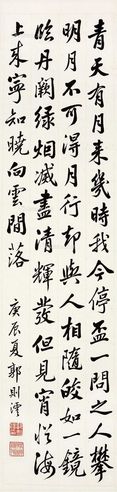 青天有月來幾時我今停盃一問之人攀
明月不可得月行却與人相隨皎如一鏡
臨丹闕綠烟滅盡清輝發但見宵從海
上來寧知曉向雲間落
庚辰夏郭則澐